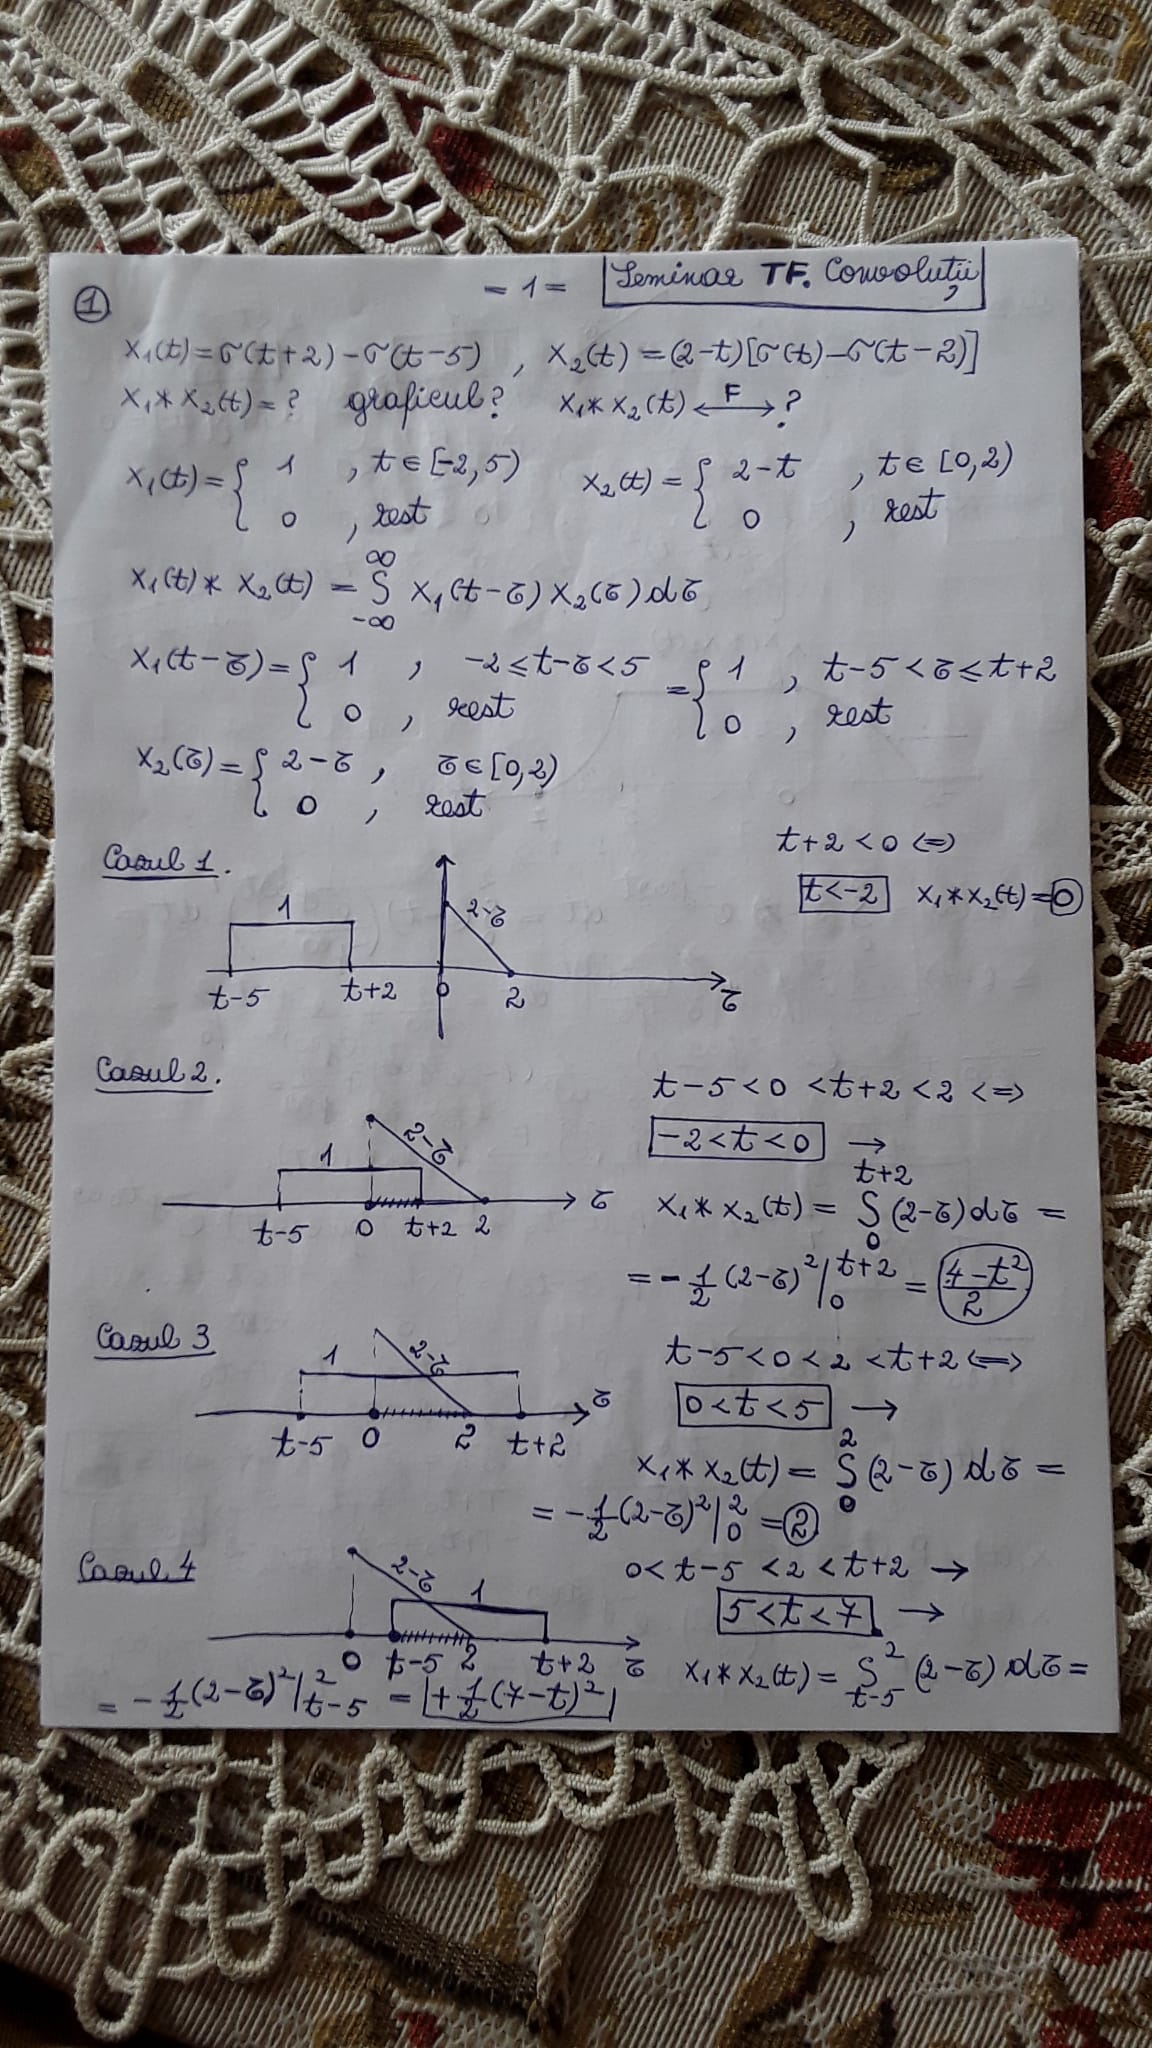 ① = 1 = Seminar TF. Convoluții
x₁(t)=σ(t+2)-σ(t-5) , x₂(t)=(2-t)[σ(t)-σ(t-2)]
x₁*x₂(t)=? graficul? x₁*x₂(t) ⟷F ?
x₁(t)={ 1 , t∈[-2,5) ; 0 , rest x₂(t)={ 2-t , t∈[0,2) ; 0 , rest
x₁(t)*x₂(t) = ∫_{-∞}^{∞} x₁(t-τ)x₂(τ)dτ
x₁(t-τ)={ 1 , -2≤t-τ<5 ; 0 , rest ={ 1 , t-5<τ≤t+2 ; 0 , rest
x₂(τ)={ 2-τ , τ∈[0,2) ; 0 , rest
Cazul 1.
t+2<0 <=>
t<-2 x₁*x₂(t)=0
1 2-τ
t-5 t+2 0 2 τ
Cazul 2.
t-5<0<t+2<2 <=>
-2<t<0 →
1 2-τ
t-5 0 t+2 2 τ
x₁*x₂(t) = ∫_0^{t+2} (2-τ)dτ =
= -1/2 (2-τ)² |_0^{t+2} = (4-t²)/2
Cazul 3
t-5<0<2<t+2 <=>
0<t<5 →
1 2-τ
t-5 0 2 t+2 τ
x₁*x₂(t) = ∫_0^2 (2-τ)dτ =
= -1/2 (2-τ)² |_0^2 = 2
Cazul 4
0<t-5<2<t+2 →
5<t<7 →
2-τ 1
0 t-5 2 t+2 τ
x₁*x₂(t) = ∫_{t-5}^2 (2-τ)dτ =
= -1/2 (2-τ)² |_{t-5}^2 = +1/2 (7-t)²